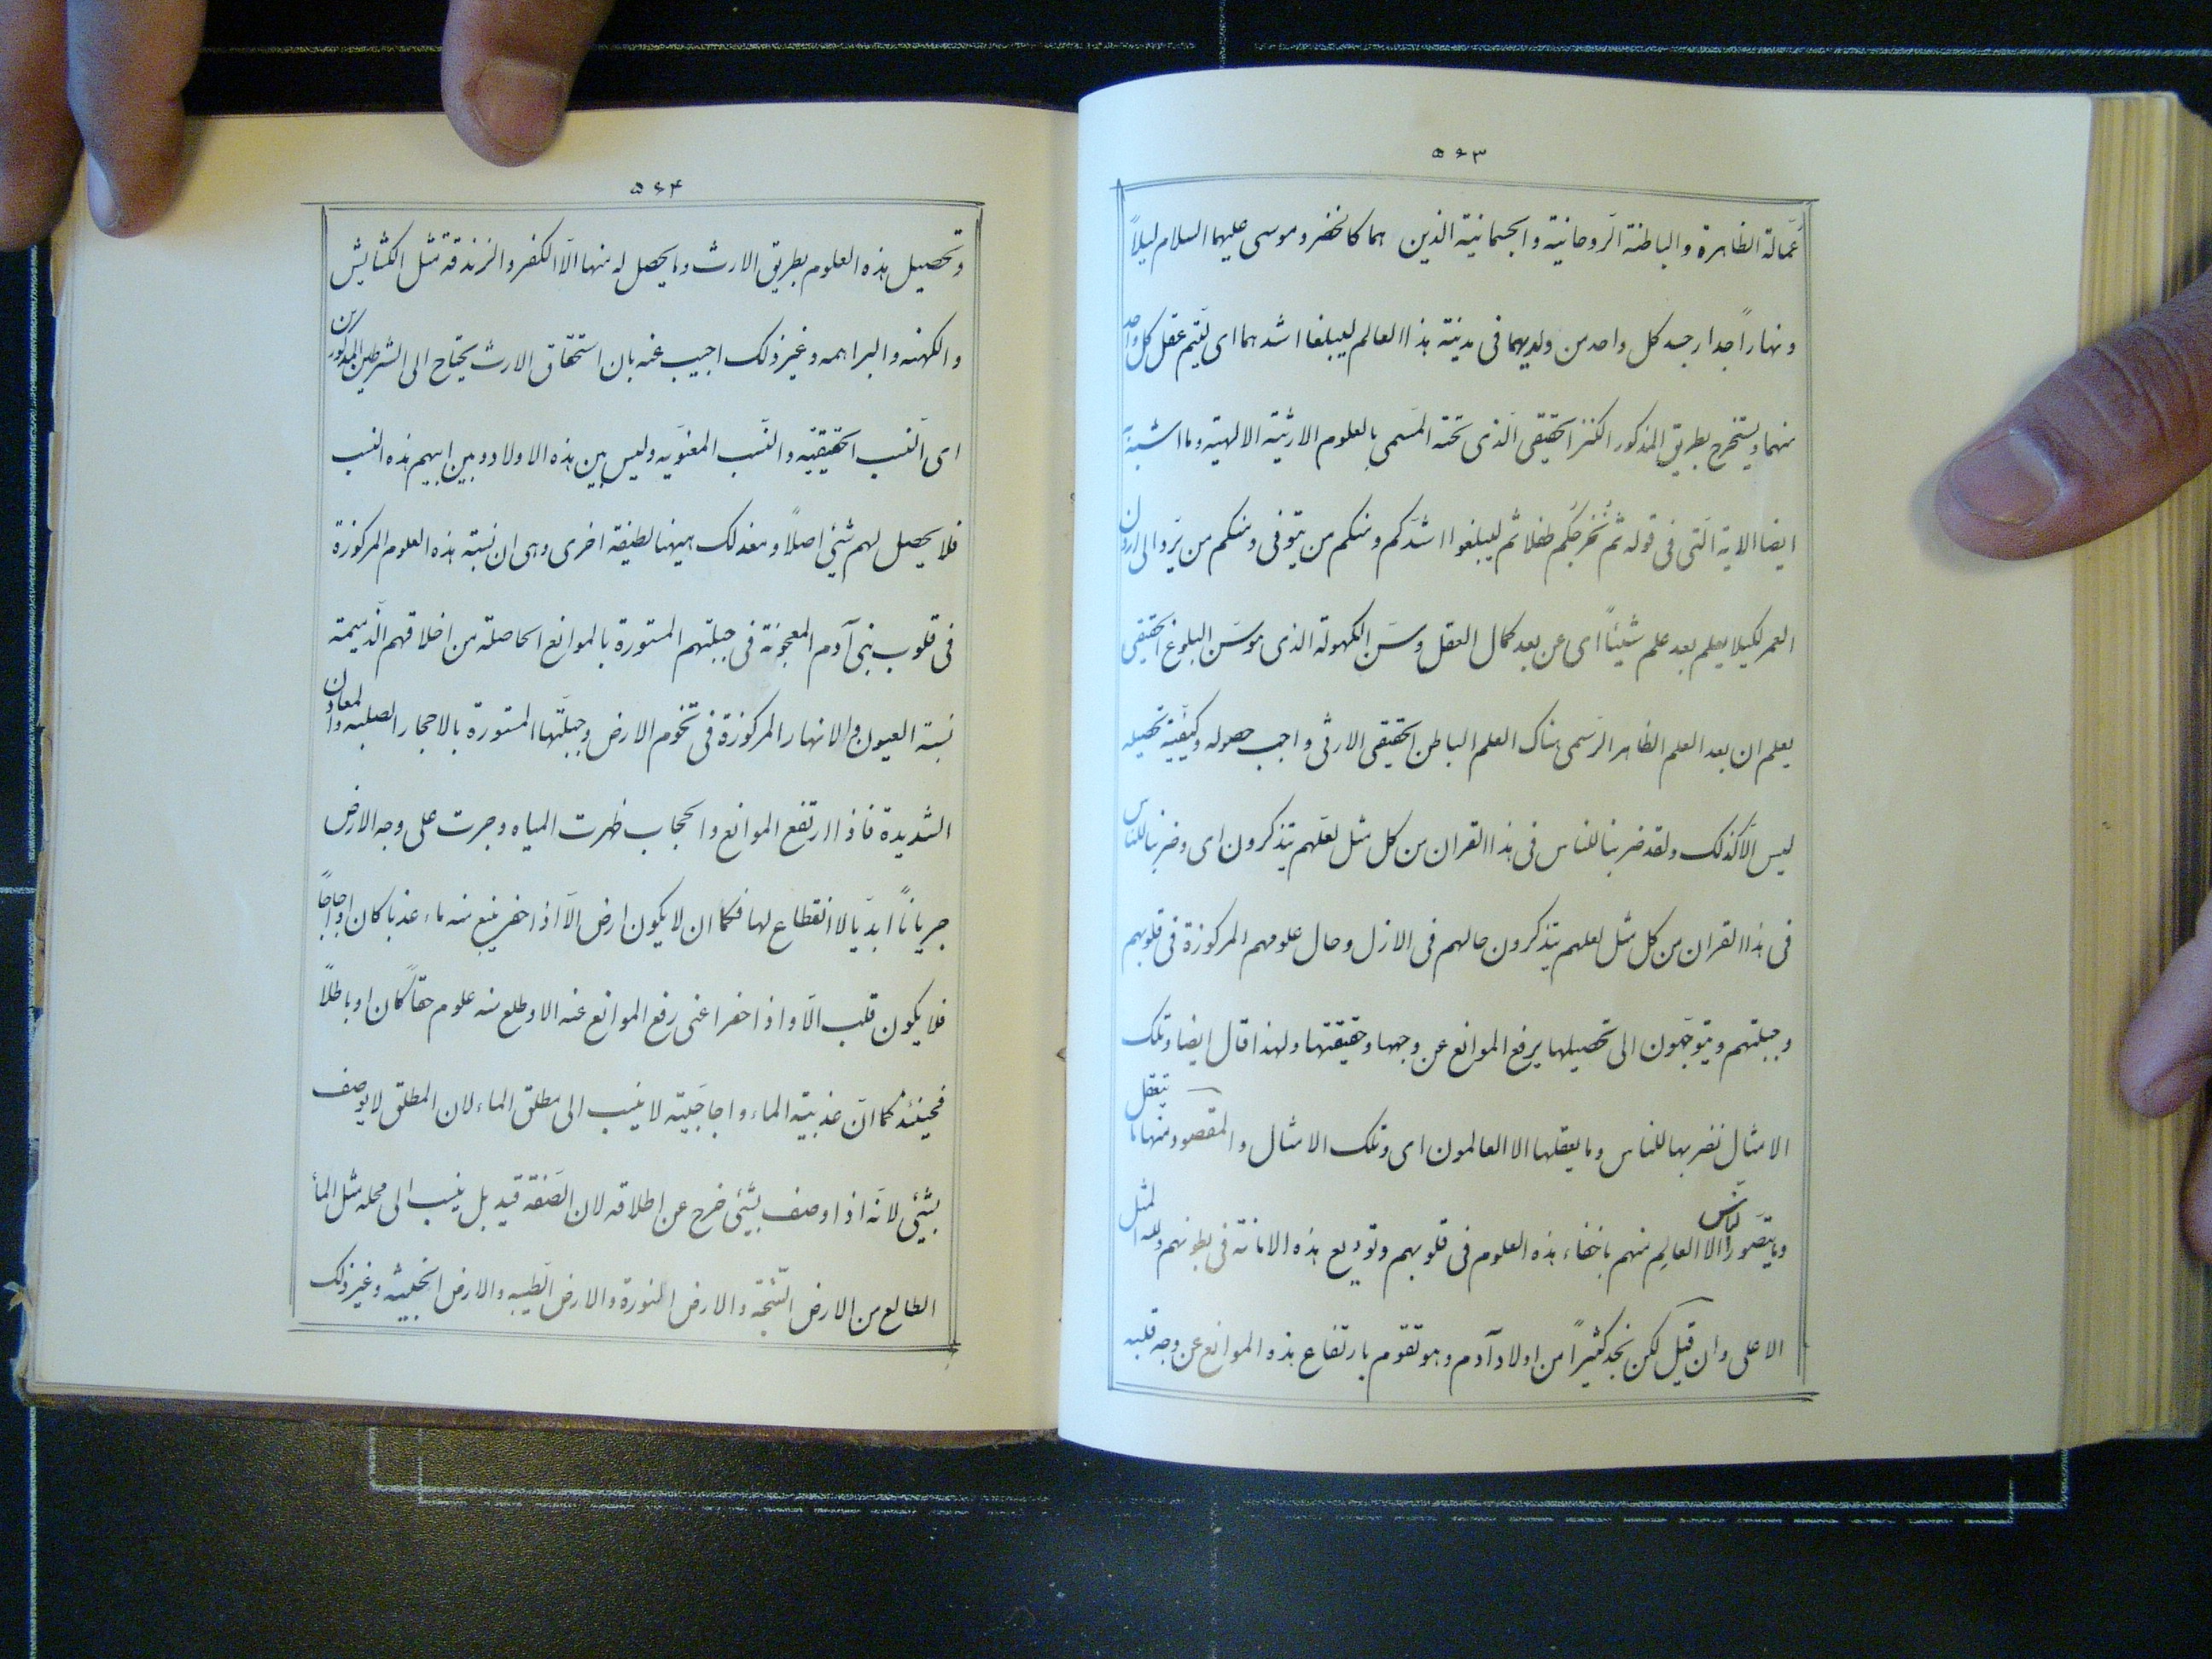 ٥٤٣
عمالة الظاهرة والباطنة الروحانية والجسمانية الذين هما كالخضر وموسى عليهما السلام ليلاً
ونهاراً جدار جسد كل واحد من ولديهما فى مدينة هذا العالم ليبلغا اشدهما اى ليتم عقل كل واحد
منهما ويستخرج بطريق المذكور الكنز الحقيقى الذى تحته المسمى بالعلوم الارثية الالهية وما
ايضا الاية التى فى قوله ثم نخرجكم طفلا ثم ليبلغوا اشدكم ومنكم من يتوفى ومنكم من يرد الى ارذل
العمر لكيلا يعلم بعد علم شيئاً اى عن بعد كمال العقل وسن الكهولة الذى هو سن البلوغ الحقيقى
يعلم ان بعد العلم الظاهر الرسمى هناك العلم الباطن الحقيقى الارثى واجب حصوله وكيفية تحصيله
ليس الا كذلك ولقد ضربنا للناس فى هذا القران من كل مثل لعلهم يتذكرون اى وضربنا للناس
فى هذا القران من كل مثل لعلهم يتذكرون حالهم فى الازل وحال علومهم المركوزة فى قلوبهم
وجبلتهم ويتوجهون الى تحصيلها برفع الموانع عن وجهها وحقيقتها ولهذا قال ايضا وتلك
الامثال نضربها للناس وما يعقلها الا العالمون اى وتلك الامثال والمقصود منها ما يتعقل
وما يتصور الا العالم منهم باخفاء هذه العلوم فى قلوبهم وتوديع هذه الامانة فى بطونهم ولله المثل
الاعلى وان قيل لكن نجد كثيراً من اولاد آدم وهو تقوم بارتفاع هذه الموانع عن وجه قلبه
٥٤٤
وتحصيل هذه العلوم بطريق الارث وما يحصل له منها الا الكفر والزندقة مثل الكشايش
والكهنه والبراهمه وغير ذلك اجيب عنه بان استحقاق الارث يحتاج الى الشرطين المذكورين
اى النسب الحقيقية والنسب المعنويه وليس بين هذه الاولاد وبين ابيهم هذه النسب
فلا يحصل لهم شئ اصلاً ومعذلك هيهنا لطيفة اخرى وهى ان نسبة هذه العلوم المركوزة
فى قلوب بنى آدم المعجونة فى جبلتهم المستورة بالموانع الحاصلة من اخلاقهم الذميمة
نسبة العيون والانهار المركوزة فى تخوم الارض وجبلتها المستورة بالاحجار الصلبه والمعادن
الشديدة فاذا ارتفع الموانع والحجاب ظهرت المياه وجرت على وجه الارض
جرياناً ابدياً لا انقطاع لها فكما ان لا يكون ارض الا اذا حفر ينبع منه ماء عذبا كان او اجاجاً
فلا يكون قلب الا واذا حفر اعنى رفع الموانع عنه الا وطلع منه علوم حقاً كان او باطلاً
فحينئذ كما ان عذبية الماء واجاجيته لا ينسب الى مطلق الماء لان المطلق لا يوصف
بشئى لانه اذا وصف بشئى خرج عن اطلاقه لان الصفة قيد بل ينسب الى محله مثل الماء
الطالع من الارض السبخة والارض المنورة والارض الطيبه والارض الخبيثه وغير ذلك